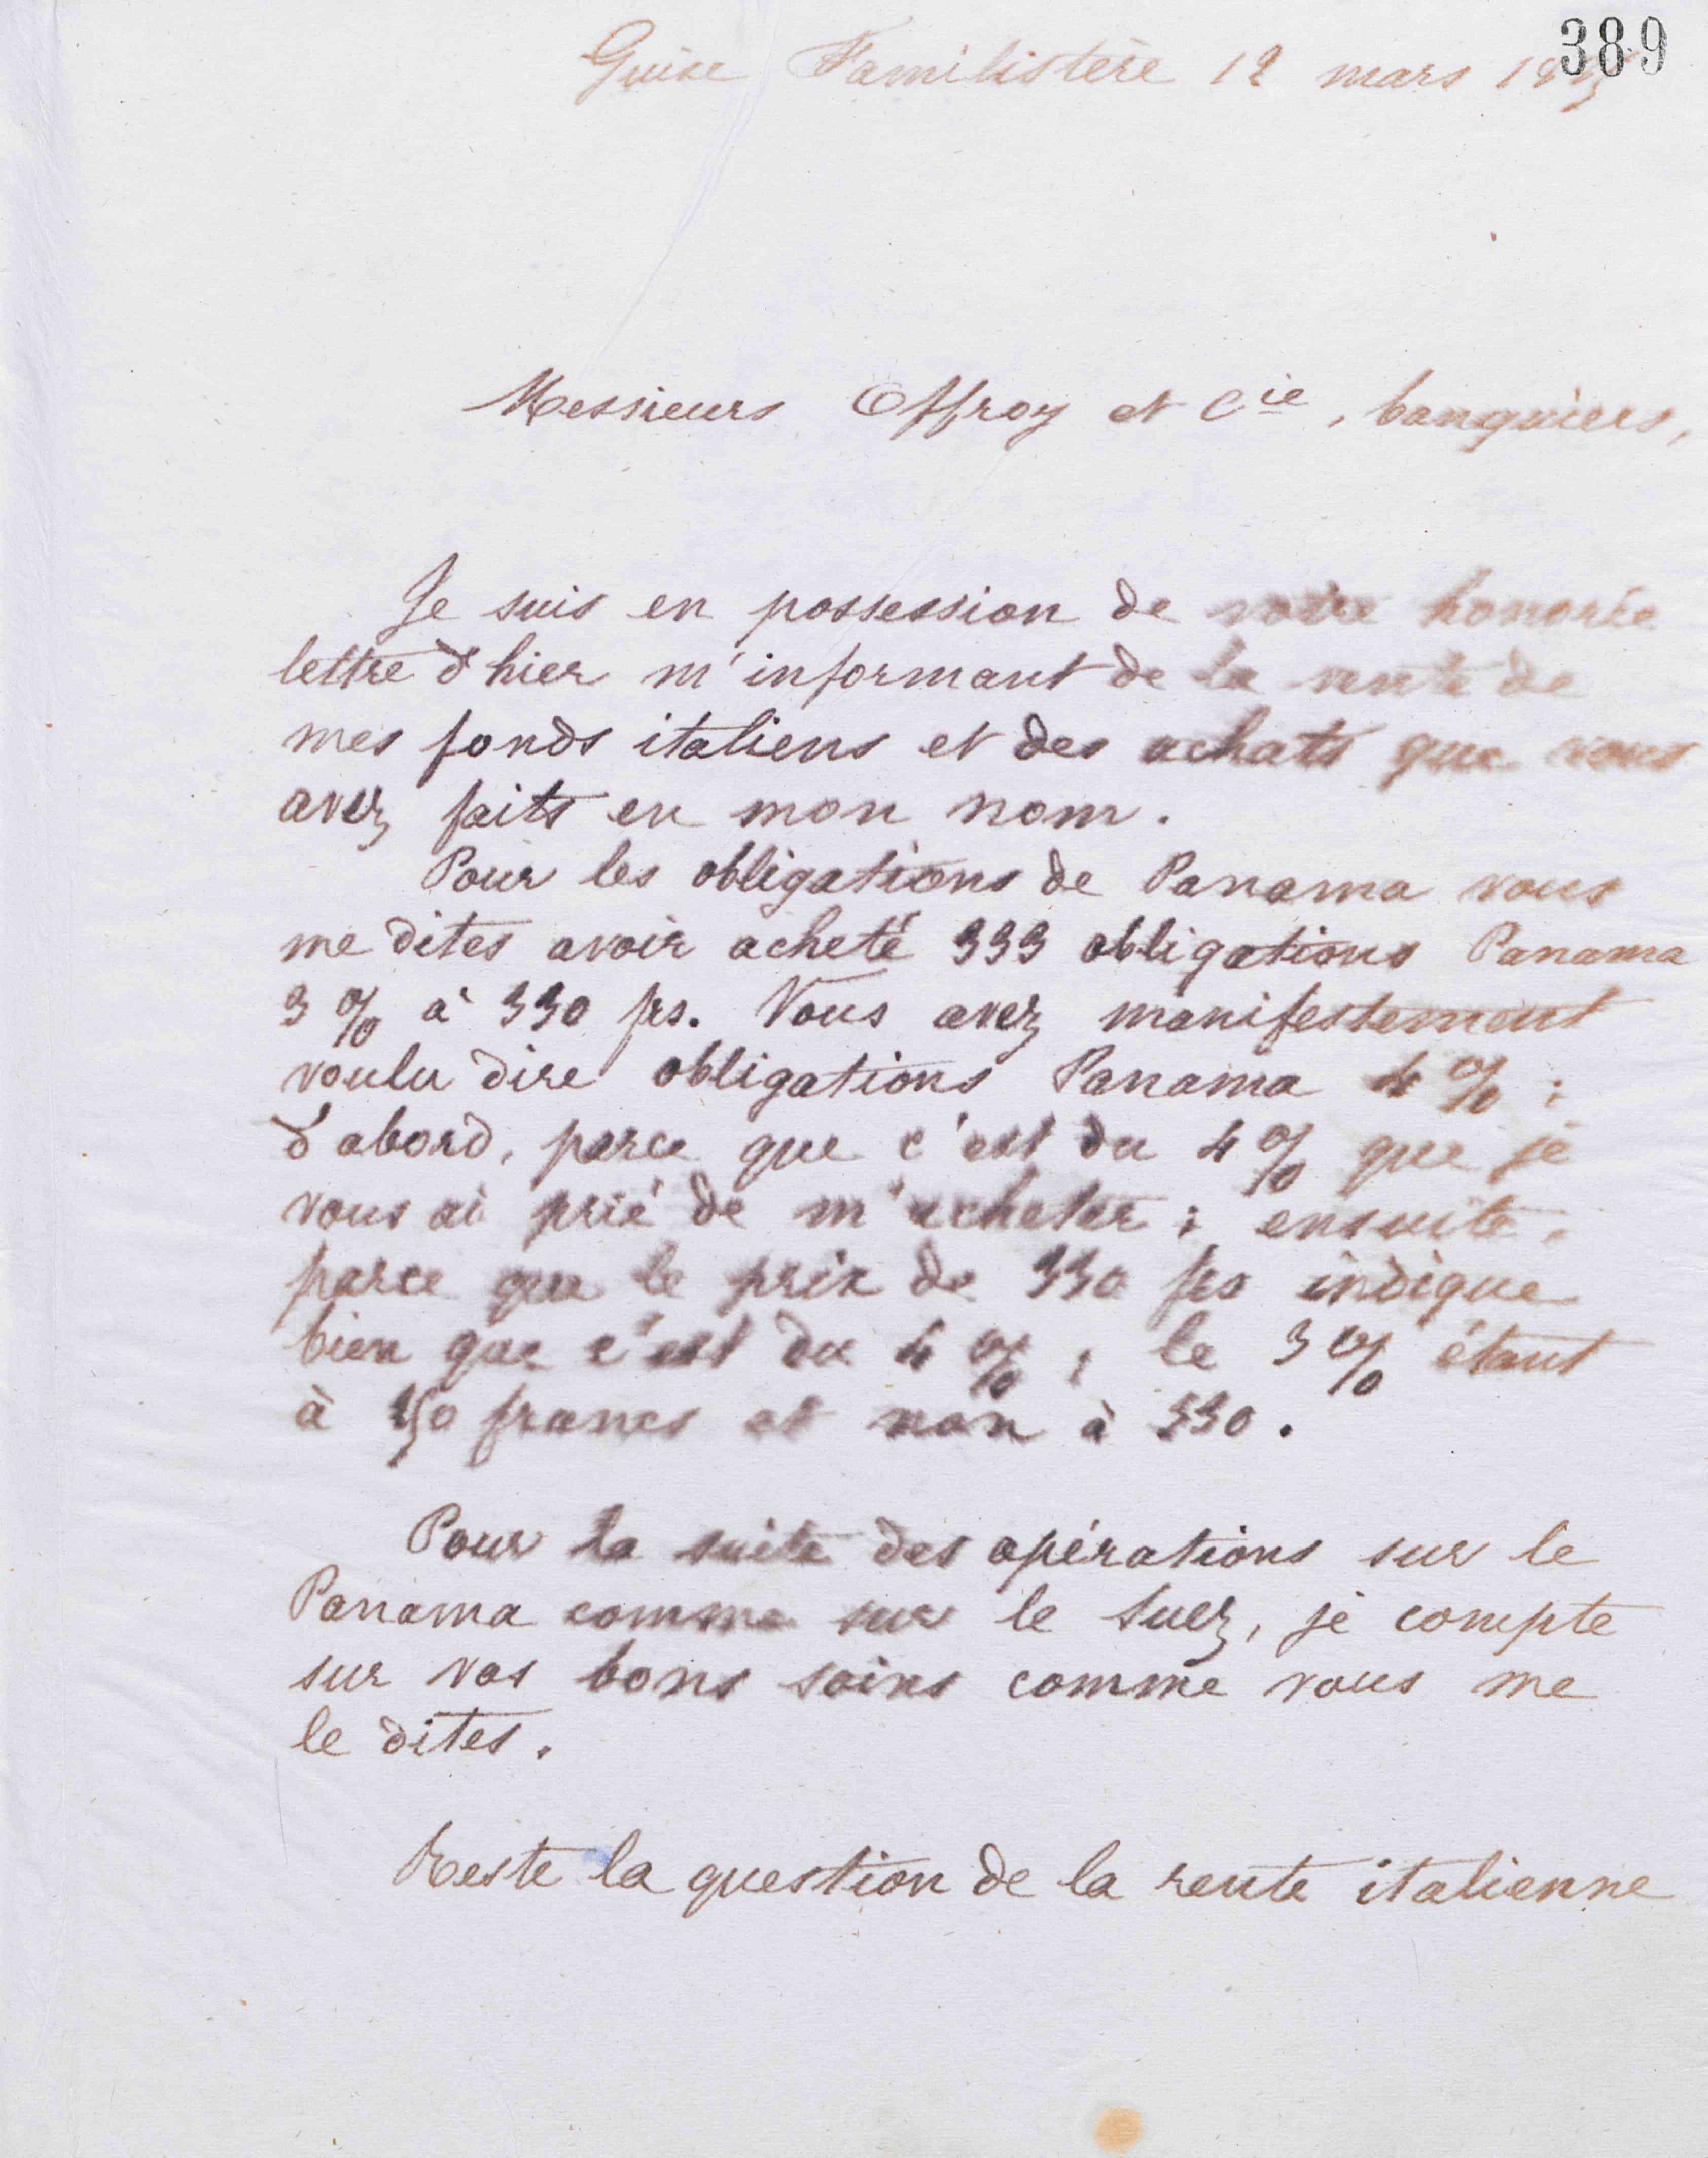 389
Guise Familistère 12 mars
Messieurs Offroy et Cie, banquiers,
Je suis en possession de votre honorée
lettre d'hier m'informant de la vente de
mes fonds italiens et des achats que vous
avez faits en mon nom.
Pour les obligations de Panama vous
me dites avoir acheté 333 obligations Panama
3 % à 330 frs. Vous avez manifestement
voulu dire obligations Panama 4 % ;
d'abord, parce que c'est du 4 % que je
vous ai prié de m'acheter ; ensuite,
parce que le prix de 330 frs indique
bien que c'est du 4 % ; le 3 % étant
à francs et non à 330.
Pour la suite des opérations sur le
Panama comme sur le Suez, je compte
sur vos bons soins comme vous me
le dites.
Reste la question de la rente italienne